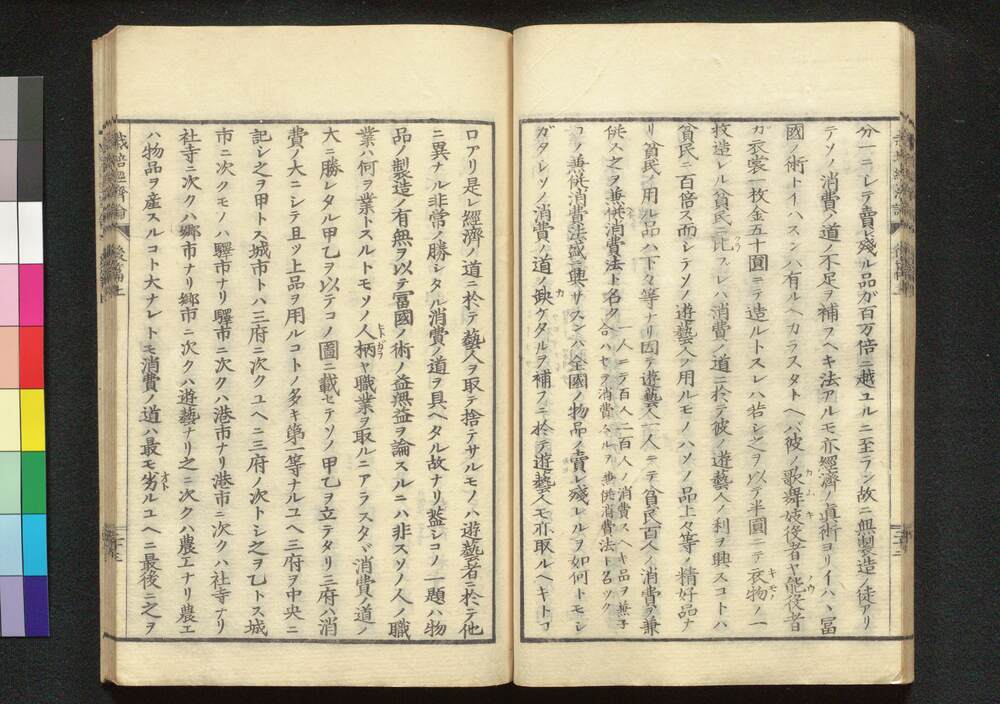 分一ニシテ賣レ殘ル品ガ百万倍ニ越ユルニ至ラン故ニ無製造ノ徒アリ
テソノ消費ノ道ノ不足ヲ補フヘキ法アルモ亦經濟ノ眞術ヨリイハヽ冨
國ノ術トイハスンハ有ルヘカラスタトヘバ彼ノ歌舞妓役者ヤ能役者
ガ衣裳一枚金五十圓ニテ造ルトスレハ若シ之ヲ以テ半圓ニテ衣物ノ一
枚造レル貧民ニ比フレハ消費ノ道ニ於テ彼ノ遊藝人ノ利ヲ興スコトハ
貧民ニ百倍ス而シテソノ遊藝人ヲ用ルモノハソノ品上々等ノ精好品ナ
リ貧民ノ用ル品ハ下々等ナリ因テ遊藝人一人ニテ貧民百人ノ消費ヲ兼
供ス之ヲ兼供消費法ト名ク
一人ニテ百人二百人ノ消費スヘキ品ヲ兼子
合ハセテ消費スルヲ兼供消費法ト名ツク
コノ兼供消費法盛ニ興サスンハ全國ノ物品ノ賣レ殘レルヲ如何トモシ
ガタシソノ消費ノ道ノ缺ケタルヲ補フニ於テ遊藝人モ亦取ルヘキトコ
栽培經濟論
後篇上
ロアリ是レ經濟ノ道ニ於テ藝人ヲ取テ捨テサルモノハ遊藝者ニ於テ他
ニ異ナル非常ノ勝レタル消費ノ道ヲ具ヘタル故ナリ蓋シコノ一題ハ物
品ノ製造ノ有無ヲ以テ冨國ノ術ノ益無益ヲ論スルニハ非スソノ人ノ職
業ハ何ヲ業トスルトモソノ人柄ヤ職業ヲ取ルニアラスタヾ消費ノ道ノ
大ニ勝レタル甲乙ヲ以テコノ圖ニ載セテソノ甲乙ヲ立テタリ三府ハ消
費ノ大ニシテ且ツ上品ヲ用ルコトノ多キ第一等ナルユヘ三府ヲ中央ニ
記シ之ヲ甲トス城市トハ三府ニ次クユヘニ三府ノ次トシ之ヲ乙トス城
市ニ次クモノハ驛市ナリ驛市ニ次クハ港市ナリ港市ニ次クハ社寺ナリ
社寺ニ次クハ郷市ナリ郷市ニ次クハ遊藝ナリ之ニ次クハ農工ナリ農工
ハ物品ヲ産スルコト大ナレトモ消費ノ道ハ最モ劣ルユヘニ最後ニ之ヲ